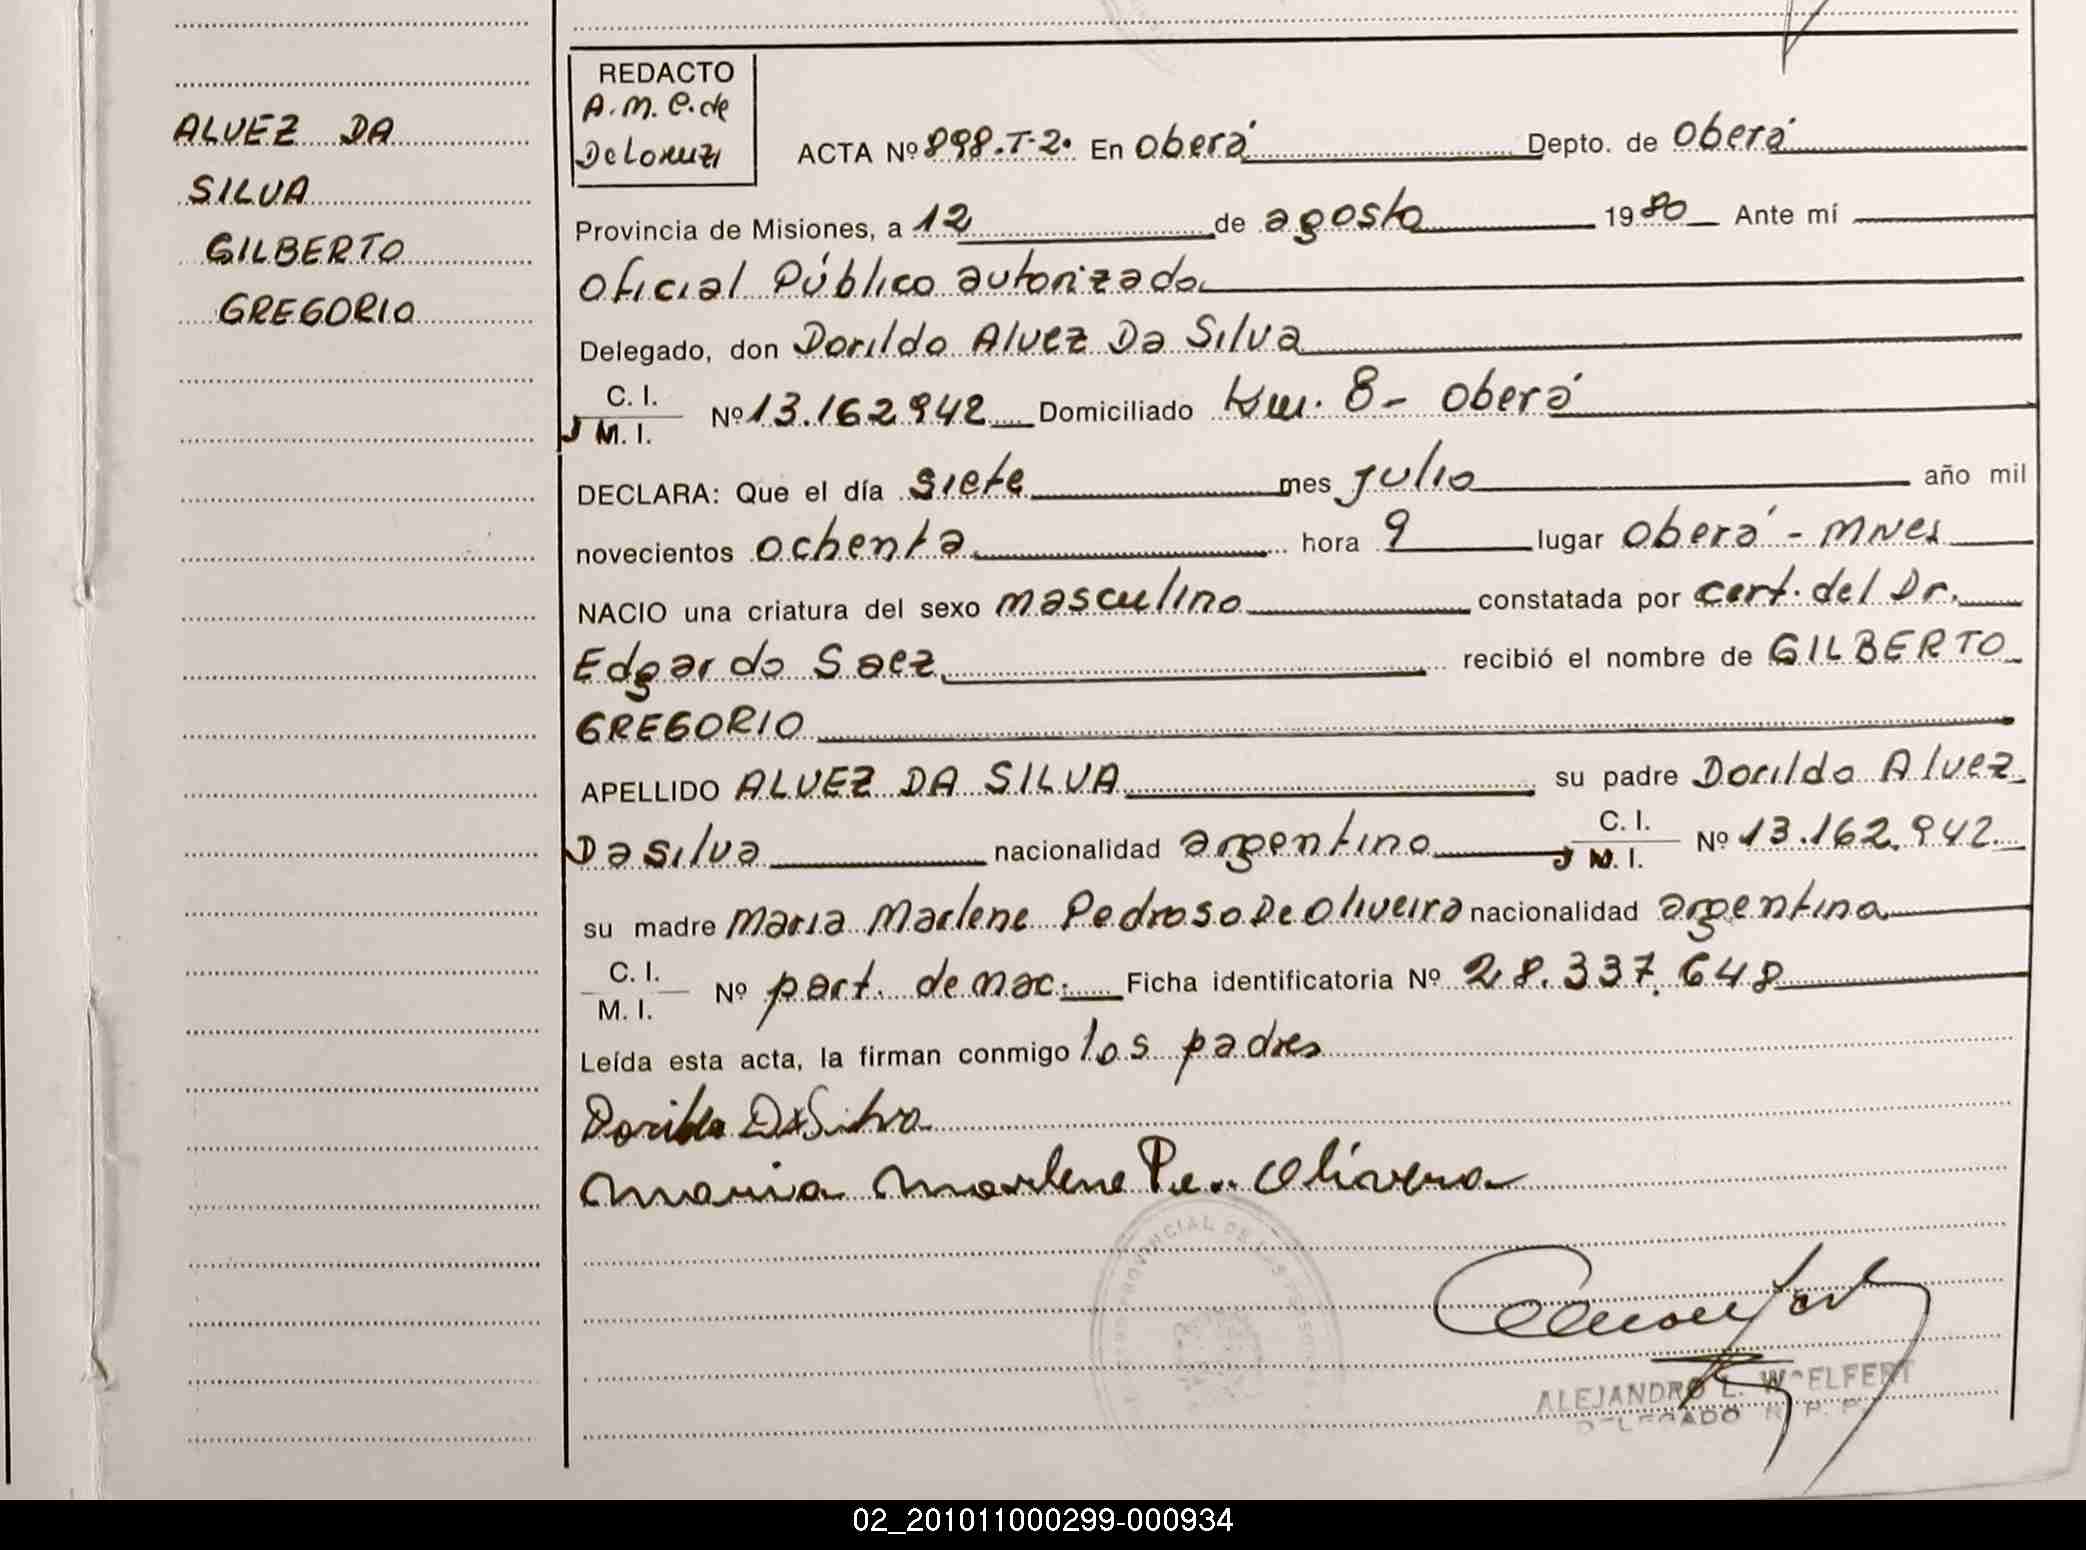 ALVEZ DA
SILVA
GILBERTO
GREGORIO
REDACTO
A.M.C. de
De Lorenzi
ACTA Nº 898.T-2. En Oberá Depto. de Oberá
Provincia de Misiones, a 12 de agosto 1980 Ante mí
Oficial Público autorizado
Delegado, don Dorildo Alvez Da Silva
C. I.
M. I. Nº 13.162942 Domiciliado Km. 8 - Oberá
DECLARA: Que el día siete mes julio año mil
novecientos ochenta hora 9 lugar Oberá - Mnes
NACIO una criatura del sexo masculino constatada por cert. del Dr.
Edgardo Saez recibió el nombre de GILBERTO
GREGORIO
APELLIDO ALVEZ DA SILVA su padre Dorildo Alvez
Da Silva nacionalidad argentino C. I. M. I. Nº 13.162.942
su madre Maria Marlene Pedroso De Oliveira nacionalidad argentina
C. I.
M. I. Nº part. de nac. Ficha identificatoria Nº 28.337.648
Leída esta acta, la firman conmigo los padres
Dorildo DaSilva
Maria Marlene Pe.. Olivera
PROVINCIAL DE LAS PERSONAS
ALEJANDRO L. WOELFERT
DELEGADO R. P. P.
02_201011000299-000934